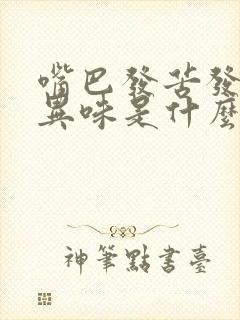 嘴巴發苦發
異味是什麼
神筆點書臺